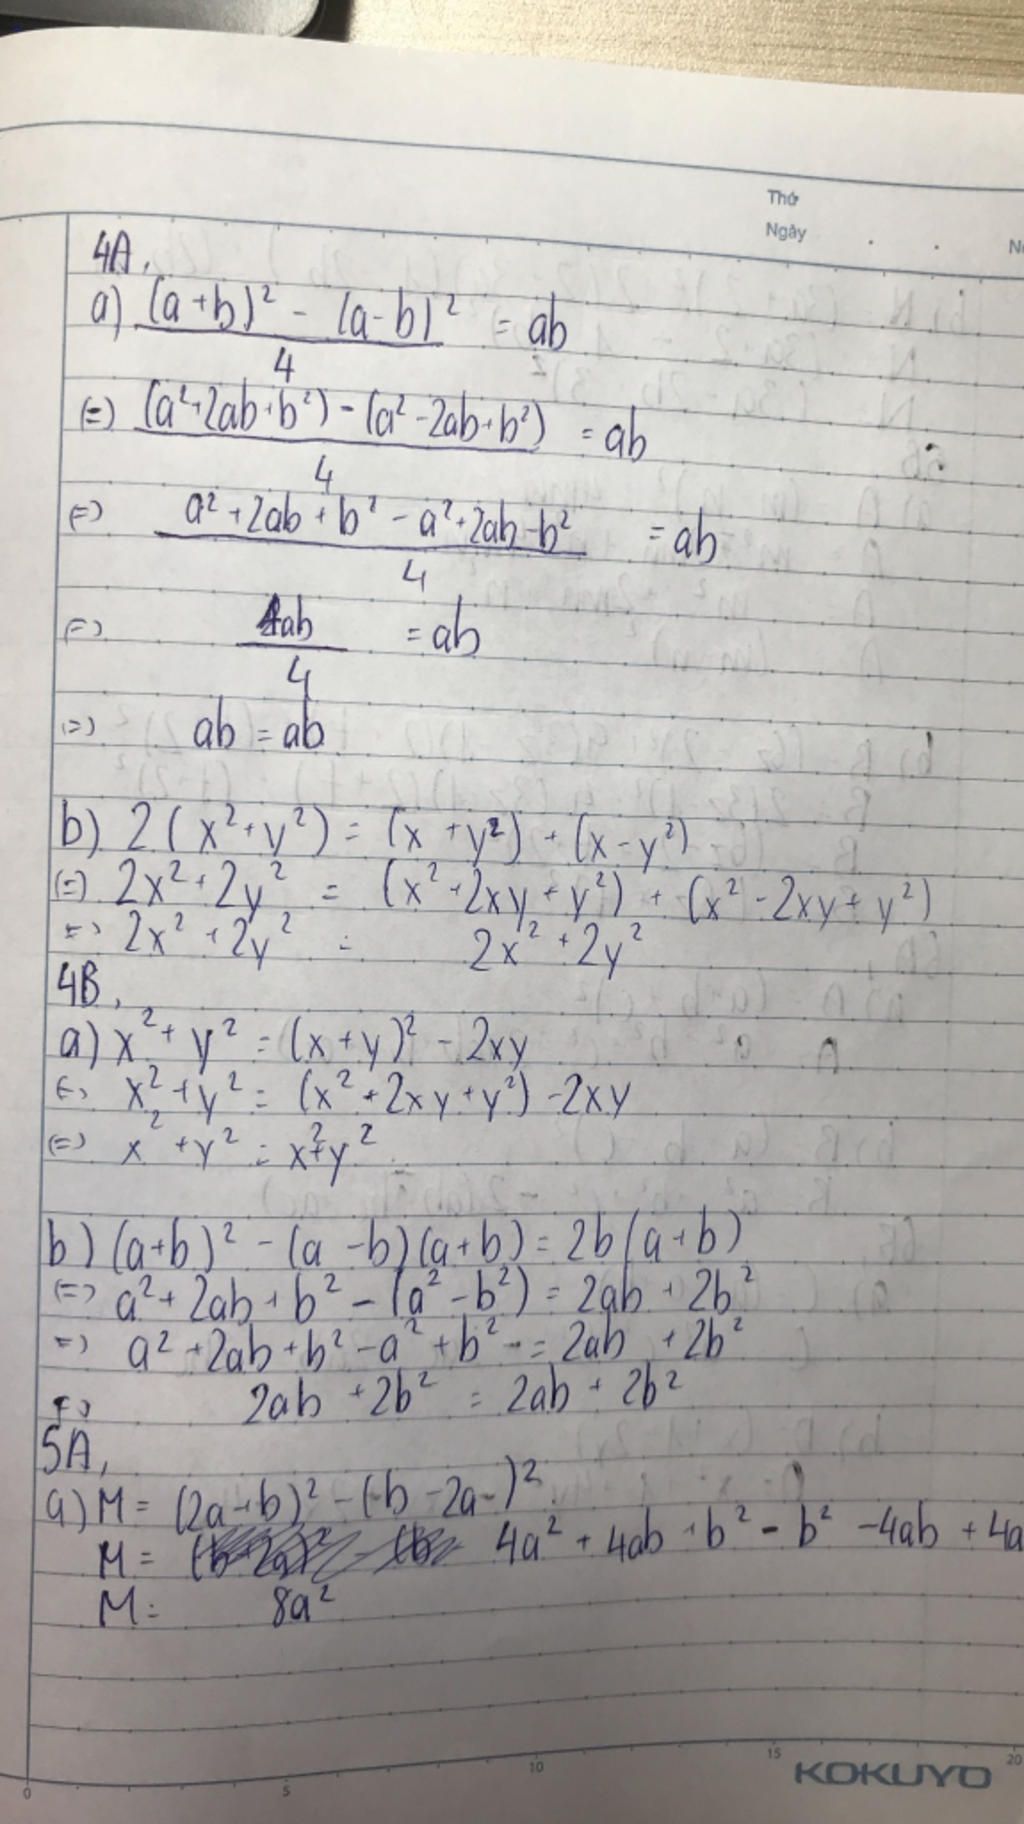 Thứ
Ngày
4A,
a) (a+b)² - (a-b)² = ab
4
(=) (a²+2ab+b²) - (a²-2ab+b²) = ab
4
(=) a² + 2ab + b² - a² + 2ab - b² = ab
4
(=) 4ab = ab
4
(=) ab = ab
b) 2(x²+y²) = (x+y²) + (x-y²)
(=) 2x² + 2y² = (x²+2xy+y²) + (x²-2xy+y²)
(=) 2x² + 2y² = 2x² + 2y²
4B,
a) x² + y² = (x+y)² - 2xy
(=) x² + y² = (x² + 2xy + y²) - 2xy
(=) x² + y² = x² + y²
b) (a+b)² - (a-b)(a+b) = 2b(a+b)
(=) a² + 2ab + b² - (a² - b²) = 2ab + 2b²
(=) a² + 2ab + b² - a² + b² = 2ab + 2b²
(=) 2ab + 2b² = 2ab + 2b²
5A,
a) M = (2a+b)² - (-b-2a-)²
M = 4a² + 4ab + b² - b² - 4ab + 4a
M = 8a²
0 5 10 15 20
KOKUYO